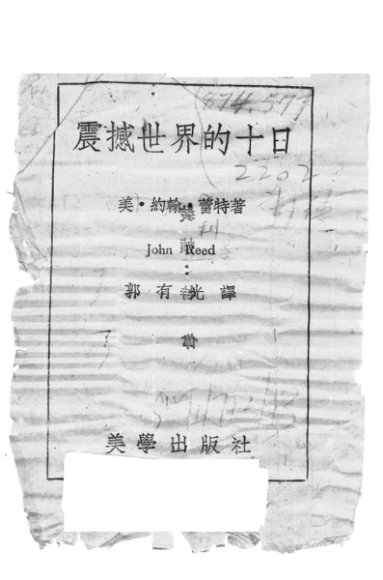 874.577
震撼世界的十日
2202
美·約翰·蕾特著
John Reed
郭有光譯
美學出版社